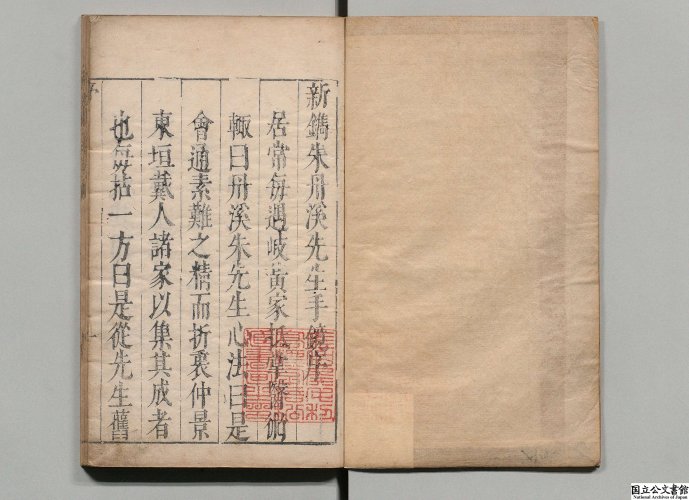 新鐫朱丹溪先生手鏡序
居常每遇岐黃家抵掌醫術
輙曰丹溪朱先生心法曰是
會通素難之精而折衷仲景
東垣戴人諸家以集其成者
也每拈一方曰是從先生舊
序
一
国立公文書館
National Archives of Japan